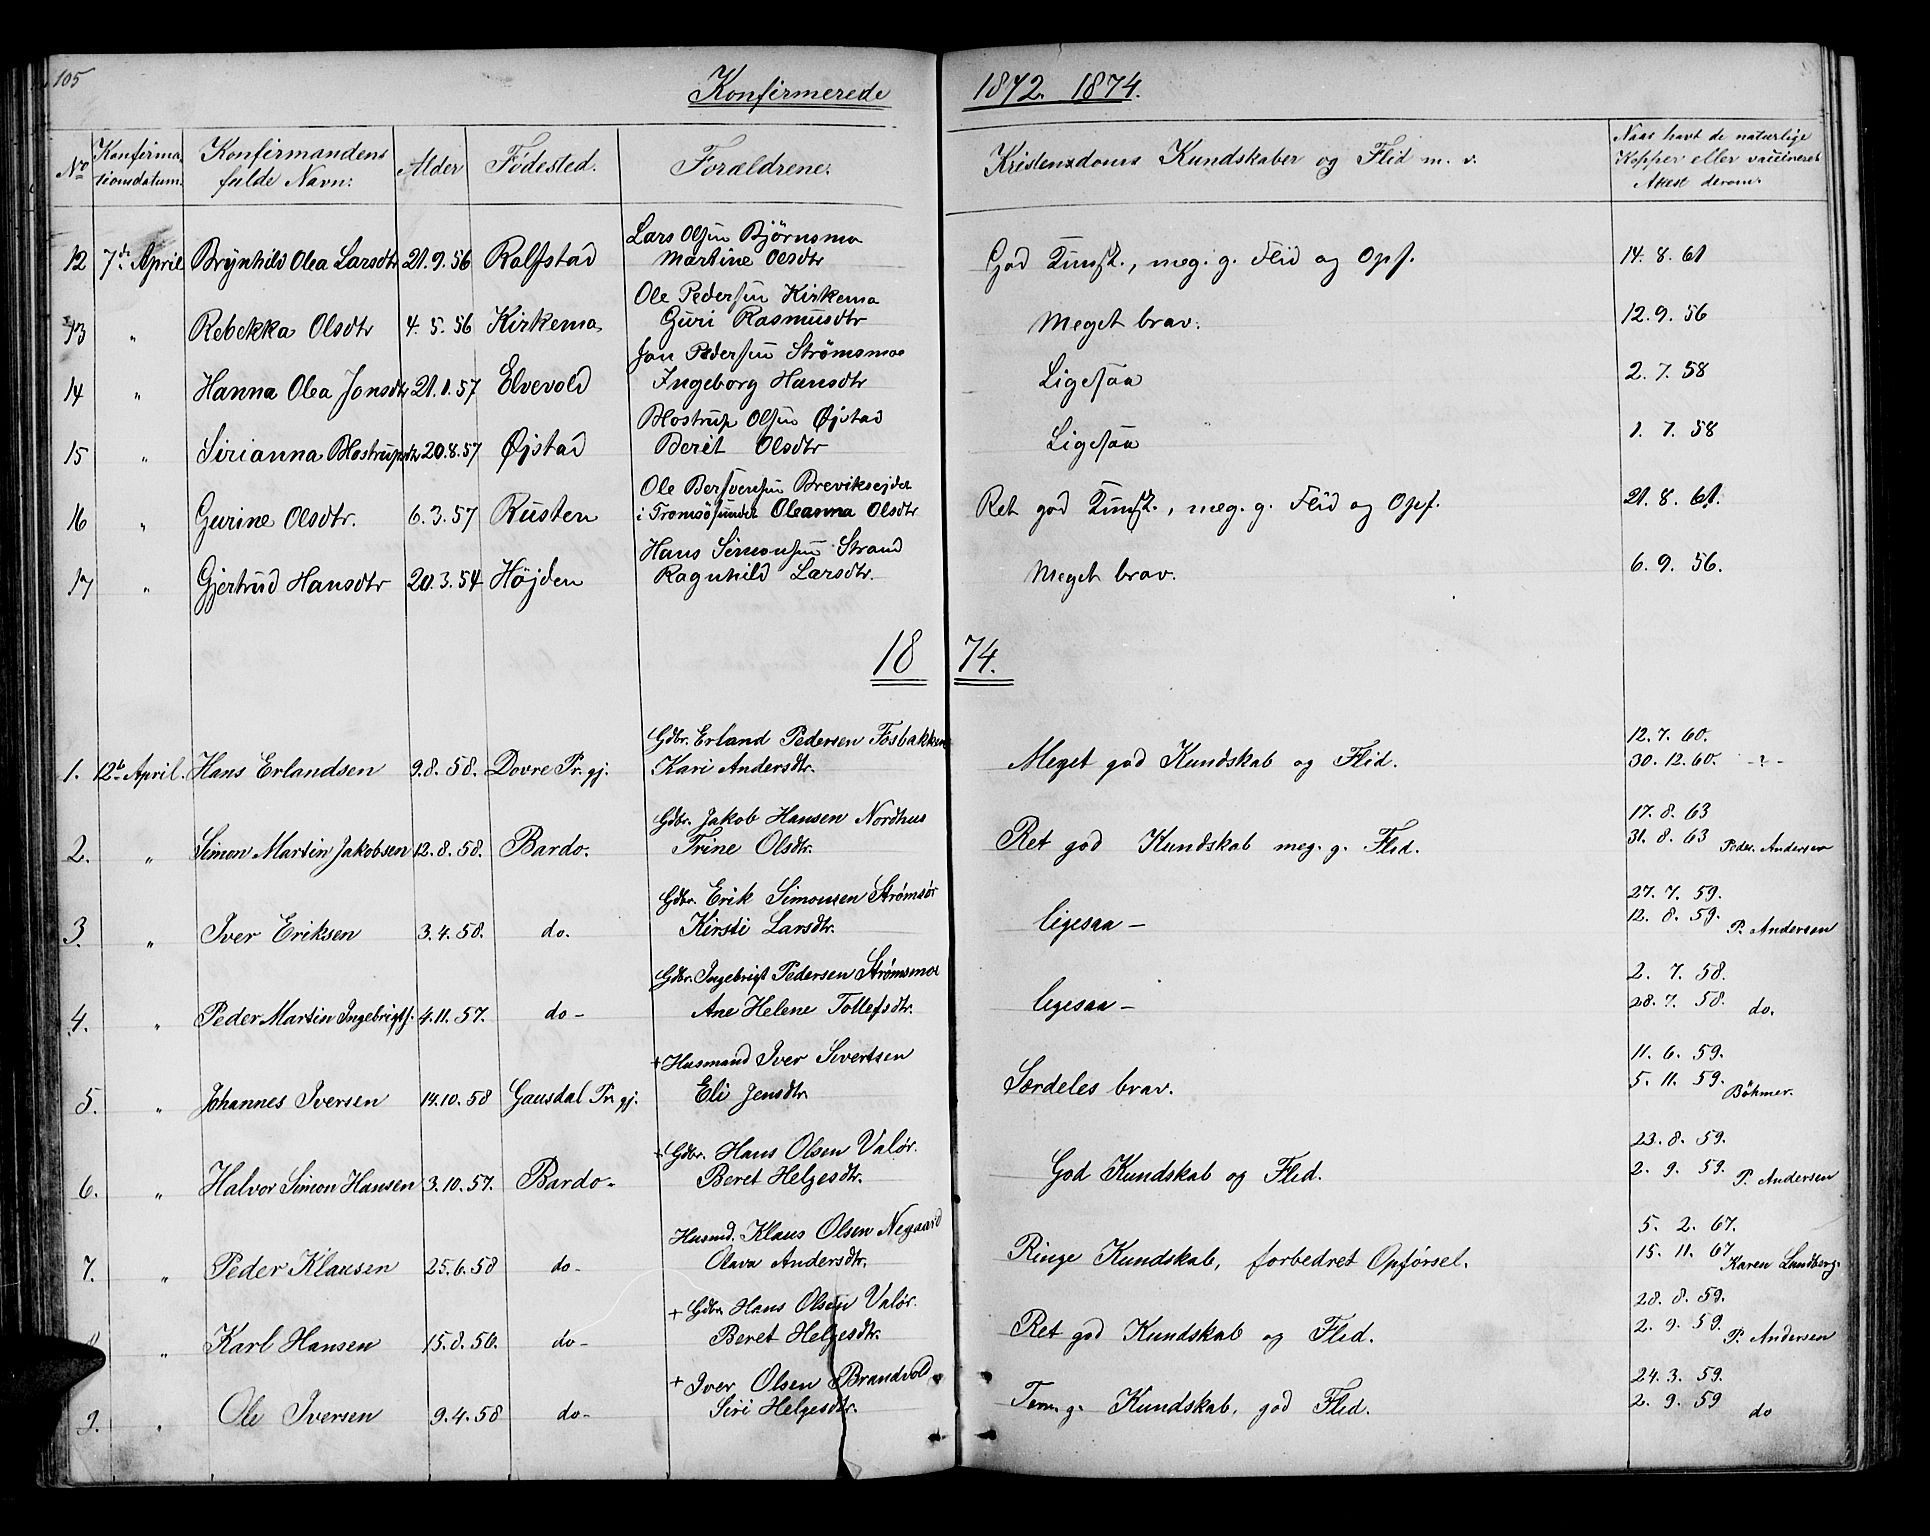 105
Konfirmerede 1872. 1874.
No Konfirmationsdatum. Konfirmandens fulde Navn: Alder Fødested. Forældrene. Kristendoms Kundskaber og Flid m. v. Naar havt de naturlige Kopper eller vaccineret Atest derom.
Lars Olsen Bjørnsmo
12 7de April Brynhild Olea Larsdtr 21.9.56 Rolfstad Martine Olsdtr God Kunsk., meg. g. Flid og Opf. 14. 8. 61
Ole Pedersen Kirkemo
13 " Rebekka Olsdtr 4.5.56 Kirkemo Guri Rasmusdtr Meget brav. 12. 9. 56
Jon Pedersen Strømsmoe
14 " Hanna Olea Jonsdtr 21.1.57 Elvevold Ingeborg Hansdtr Ligesaa 2. 7. 58
Mostrup Olsen Øjstad
15 " Sirianna Mostrupsdtr 20.8.57 Øjstad Berit Olsdtr Ligesaa 1. 7. 58
Ole Bersvensen Breviksejdet
16 " Gurine Olsdtr. 6.3.57 Rusten i Tromsøsundet Oleanna Olsdtr Ret god Kunsk., meg. g. Flid og Opf. 21. 8. 61.
Hans Simonsen Strand
17 " Gjertrud Hansdtr 20.3.54 Højden Ragnhild Larsdtr. Meget brav. 6. 9. 56.
1874.
Gdbr. Erland Pedersen Fosbakken 12. 7. 60.
1. 12te April. Hans Erlandsen 9.8.58. Dovre Pr.gj. Kari Andersdtr. Meget god Kundskab og Flid. 30. 12. 60. -?-
Gdbr. Jakob Hansen Nordhus 17. 8. 63
2. " Simon Martin Jakobsen 12.8.58. Bardo. Trine Olsdtr. Ret god Kundskab meg. g. Flid. 31. 8. 63 Peder Andersen
Gdbr. Erik Simonsen Strømsør 27. 7. 59.
3. " Iver Eriksen 3.4.58. do. Kirsti Larsdtr. ligesaa - 12. 8. 59. P. Andersen
Gdbr. Ingebrigt Pedersen Strømsmoe 2. 7. 58.
4. " Peder Martin Ingebrigts. 4.11.57. do - Ane Helene Tollefsdtr. ligesaa - 28. 7. 58. do.
+ Husmand Iver Sivertsen 11. 6. 59.
5. " Johannes Iversen 14.10.58 Gausdal Pr.gj. Eli Jensdtr. Særdeles brav. 5. 11. 59. Böhmer.
+ Gdbr. Hans Olsen Valør. 23. 8. 59.
6. " Halvor Simon Hansen 3.10.57. Bardo - Beret Helgesdtr. God Kundskab og Flid. 2. 9. 59. P. Andersen
Husmd. Klaus Olsen Negaard 5. 2. 67.
7. " Peder Klausen 25.6.58 do - Olava Andersdtr. Ringe Kundskab, forbedret Opførsel. 15. 11. 67 Karen Lundberg.
+ Gdbr. Hans Olsen Valør. 28. 8. 59.
" Karl Hansen 15.8.56. do - Beret Helgesdtr. Ret god Kundskab og Flid. 2. 9. 59. P. Andersen
+ Iver Olsen Brandvold 24. 3. 59.
9. " Ole Iversen 9.4.58 do - Siri Helgesdtr. Tem. g. Kundskab, god Flid. 2. 9. 59 do